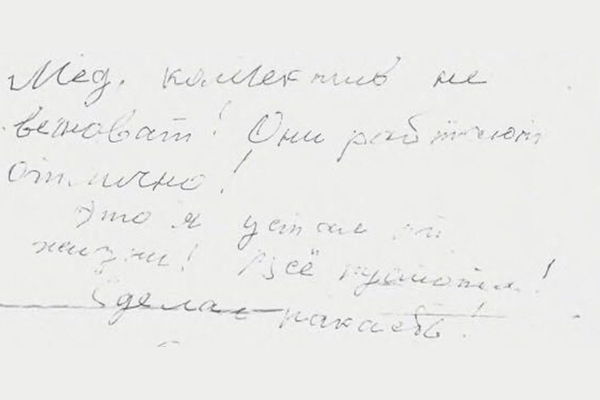 Мед. коллектив не
виноват! Они работают
отлично!
Это я устал от
жизни! Всё